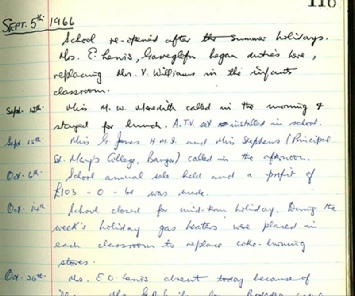 116
SEPT. 5th 1966
School re-opened after the summer holidays.
Mrs. E. Lewis, began duties here,
replacing Mrs. V. Williams in the infants
classroom.
Sept. 12th. Miss M. W. Meredith called in the morning &
stayed for lunch. A T.V. set installed in school.
Sept. 15th Miss G. Jones H.M.I. and Miss Stephens (Principal
St. Mary's College, Bangor) called in the afternoon.
Oct. 6th. School annual sale held and a profit of
£103 - 0 - was made.
Oct. 14th School closed for mid-term holiday. During the
week's holiday gas heaters were placed in
each classroom to replace coke-burning
stoves.
Oct. 26th Mrs. E. O. Lewis absent today because of